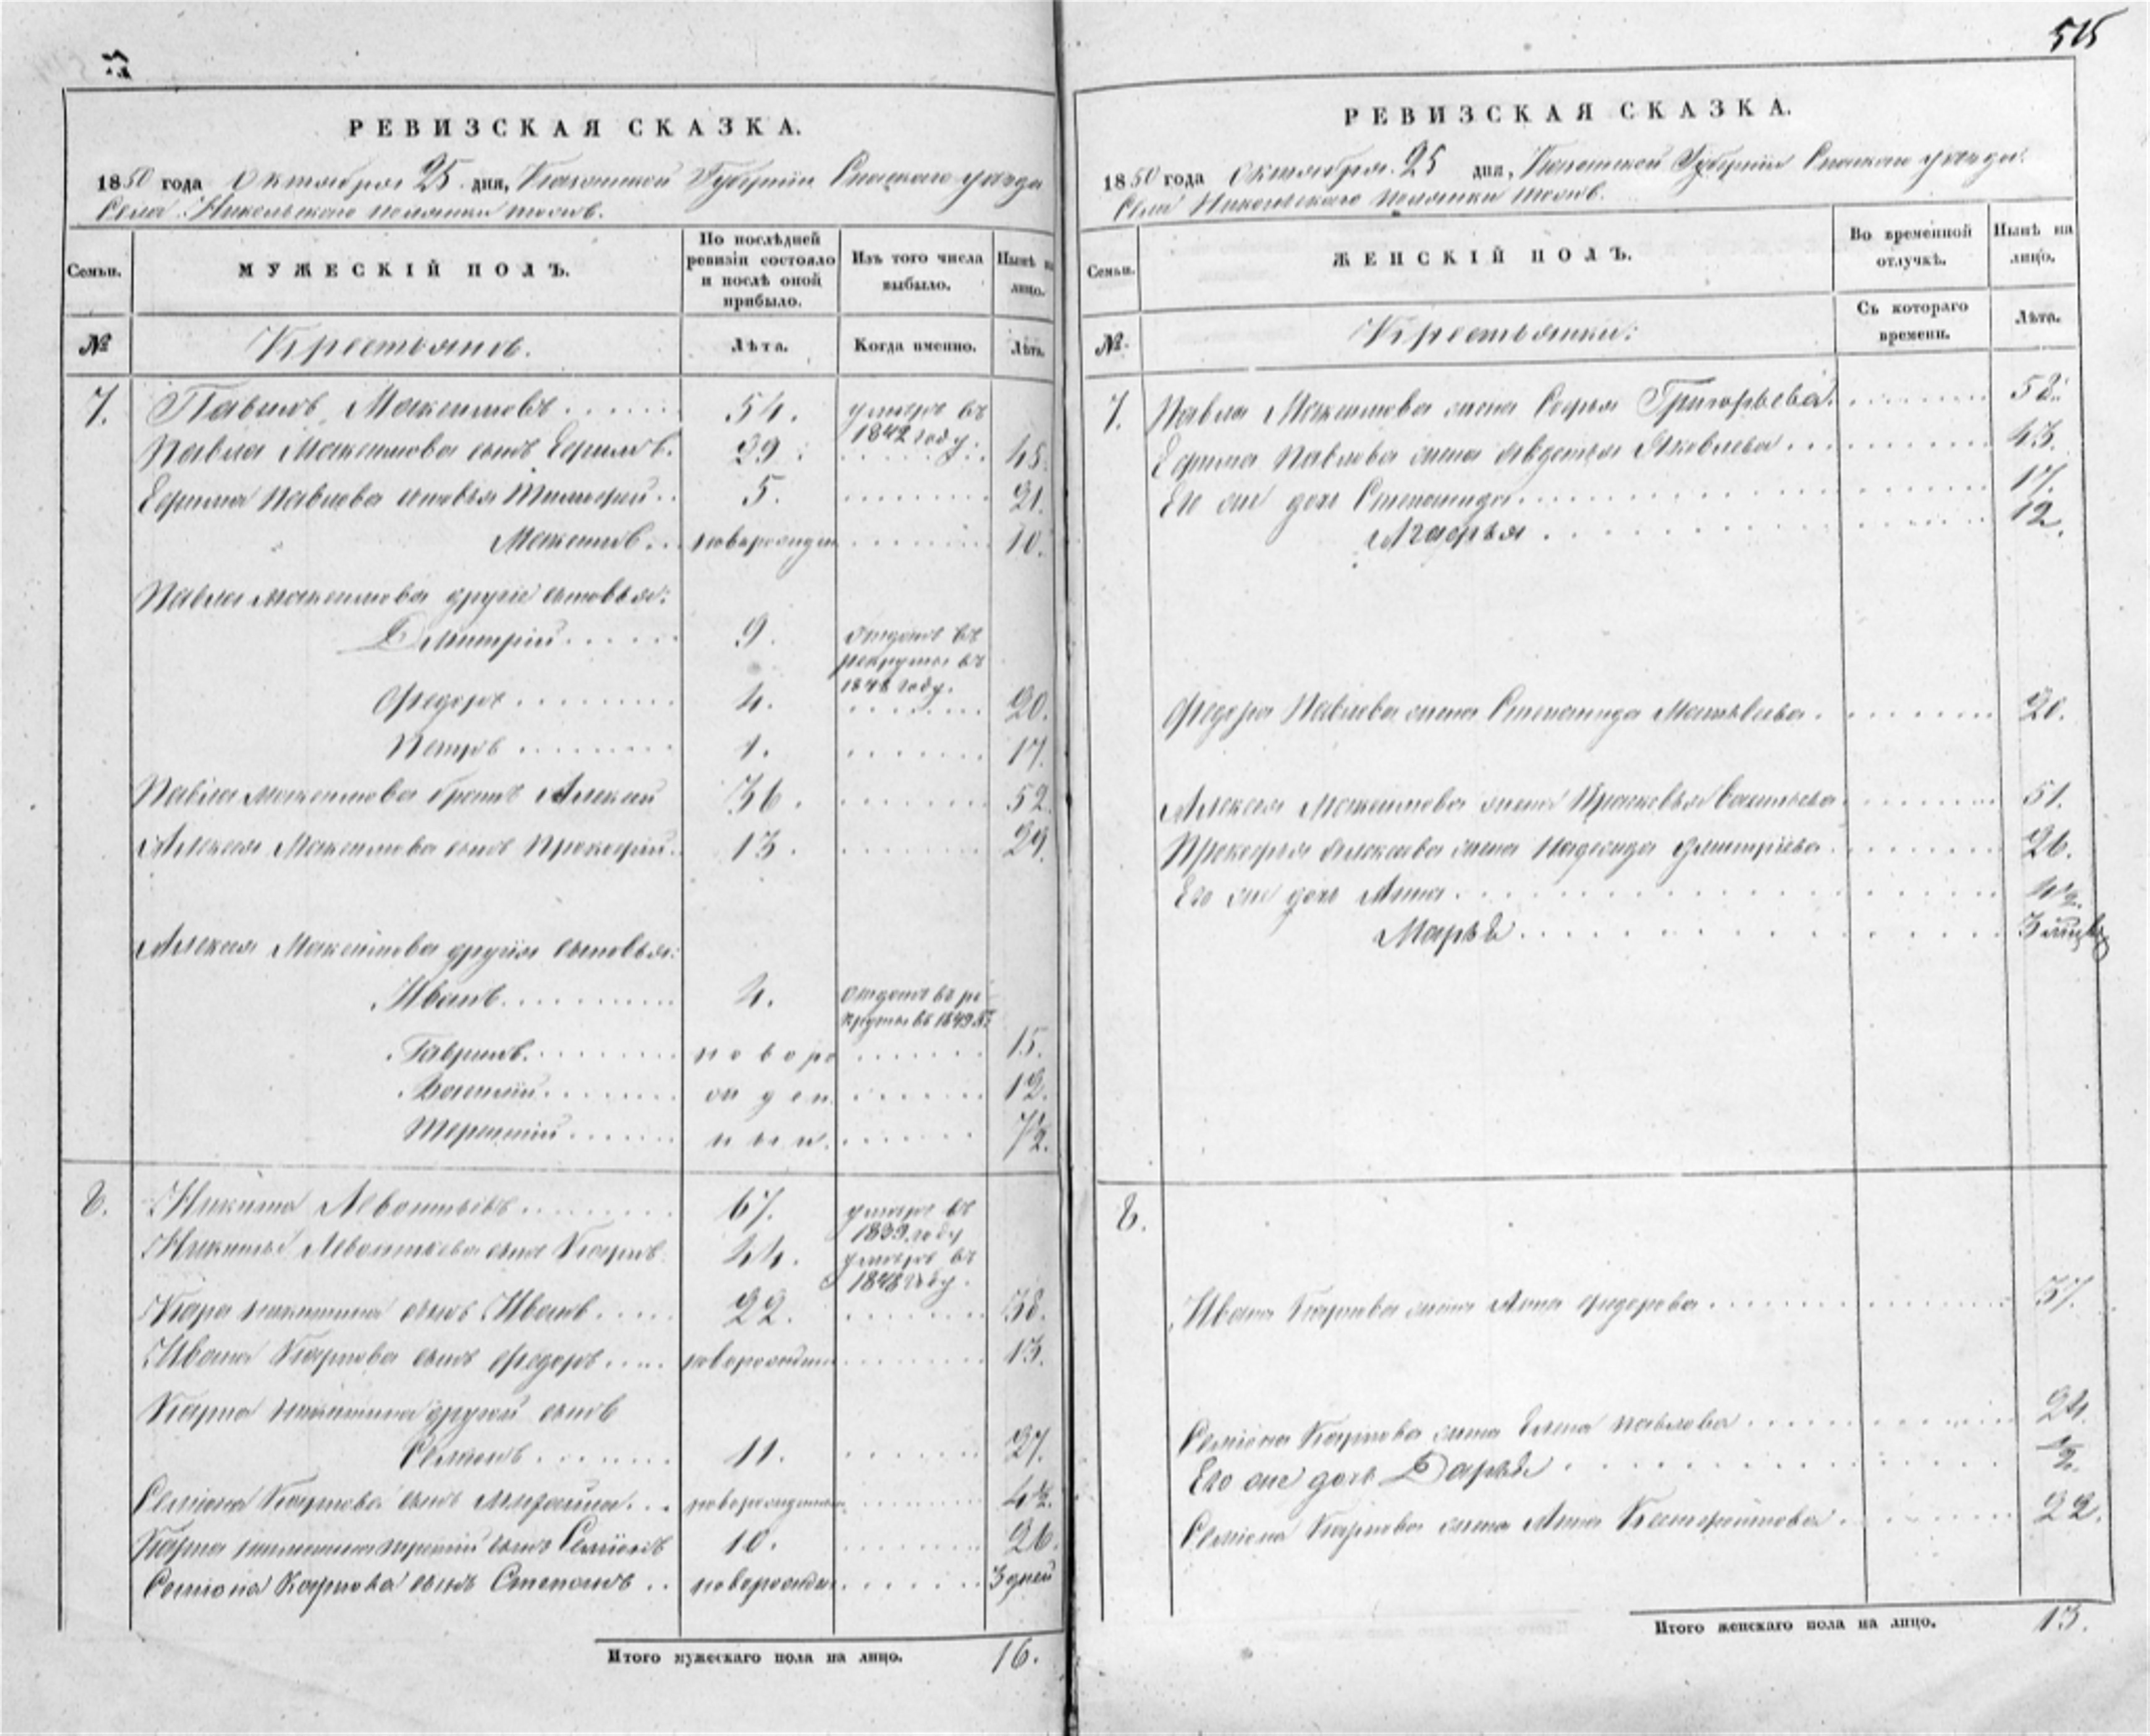 515
РЕВИЗСКАЯ СКАЗКА.
1850 года Октября 25 дня, Казанской Губернии Спасскаго уезда
Села Никольскаго Полянки тожъ.
Семьи.
МУЖЕСКІЙ ПОЛЪ.
По послѣдней ревизіи состояло и послѣ оной прибыло.
Изъ того числа выбыло.
Нынѣ на лицо.
№
Крестьяновъ.
Лѣта.
Когда именно.
Лѣта.
7. Павилъ Максимовъ 54. умеръ въ 1842 году.
Павла Максимова сынъ Ефимъ. 29. 45.
Ефима Павлова сыновья Тимофей 5. 21.
Максимъ новорожден 10.
Павла Максимова другие сыновья:
Дмитрій 9. отданъ въ рекруты въ 1848 году.
Федоръ 4. 20.
Петръ 1. 17.
Павла Максимова братъ Алексей 36. 52.
Алексея Максимова сынъ Прокофій 13. 29.
Алексея Максимова другия сыновья:
Иванъ 4. отданъ въ рекруты въ 1849
Гаврилъ новоро 15.
Василій жден 12.
Терентій ныи. 7½.
8. Никита Леонтьевъ 67. умеръ въ 1839 году
Никиты Леонтьева сынъ Карпъ 44. умеръ въ 1848 году.
Карпа Никитина сынъ Иванъ 22. 38.
Ивана Карпова сынъ Федоръ новорожден 13.
Карпа Никитина другой сынъ
Семионъ 11. 27.
Семиона Карпова сынъ Михайла новорожден 4½.
Карпа Никитина третий сынъ Семіонъ 10. 26.
Семиона Карпова сынъ Степанъ новорожден 3 дней
Итого мужескаго пола на лицо. 16.
РЕВИЗСКАЯ СКАЗКА.
1850 года Октября 25 дня, Казанской Губернии Спасскаго уезда.
Села Никольскаго Полянки тожъ.
Семьи.
ЖЕНСКІЙ ПОЛЪ.
Во временной отлучкѣ.
Нынѣ на лицо.
№
Крестьянки:
Съ котораго времени.
Лѣта.
7. Павла Максимова жена Софья Григорьева. 58.
Ефима Павлова жена Авдотья Яковлева 43.
Его же дочь Степанида 17.
Агафья 12.
Федора Павлова жена Степанида Матвеева 20.
Алексея Максимова жена Прасковья Васильева 51.
Прокофья Алексеева жена Надежда Дмитріева 26.
Его же дочь Анна 4½.
Марья 3 месяц
8.
Ивана Карпова жена Анна Федорова 37.
Семиона Карпова жена Елена Павлова 24.
Его же дочь Дарья ½.
Семиона Карпова жена Анна 22.
Итого женскаго пола на лицо. 13.